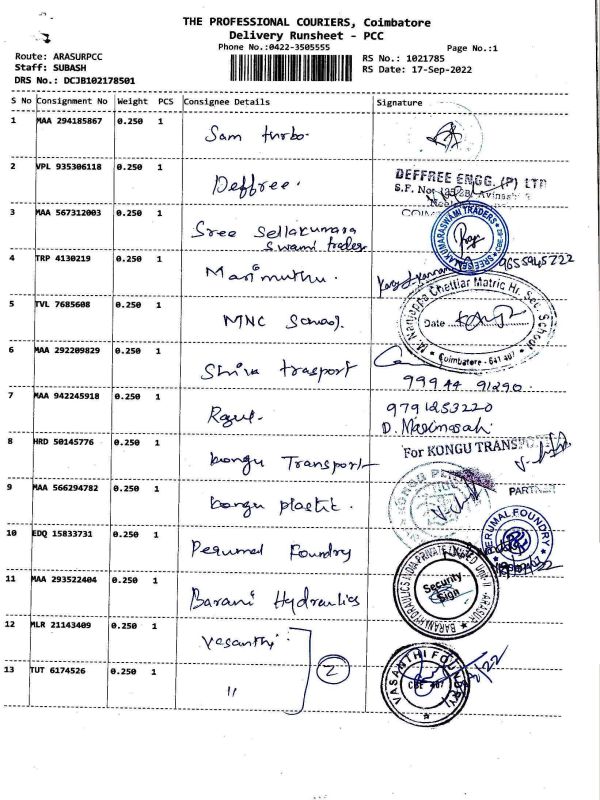 THE PROFESSIONAL COURIERS, Coimbatore
Delivery Runsheet - PCC
Phone No.:0422-3505555
Page No.:1
Route: ARASURPCC
Staff: SUBASH
DRS No.: DCJB102178501
RS No.: 1021785
RS Date: 17-Sep-2022
S No Consignment No Weight PCS Consignee Details Signature
1 MAA 294185867 0.250 1 Sam turbo.
2 VPL 935306118 0.250 1 Deffree.
DEFFREE ENGG. (P) LTD
S.F. No:
3 MAA 567312003 0.250 1 Sree Sellakumara
Swami trades
4 TRP 4130219 0.250 1 Marimuthu.
9655945722
5 TVL 7685608 0.250 1 MNC
Nanjappa Chettiar Matric Hr. Sec. School
Date
Coimbatore - 641 407
6 MAA 292209829 0.250 1 Shiva trasport
99944 91290.
7 MAA 942245918 0.250 1
9791253220
8 HRD 50145776 0.250 1 kongu Transport
For KONGU TRANSPORT
9 MAA 566294782 0.250 1 kongu plastic.
PARTNER
10 EDQ 15833731 0.250 1 Perumal Foundry
PERUMAL FOUNDRY
11 MAA 293522404 0.250 1 Barani Hydraulics
BARANI HYDRAULICS INDIA PRIVATE LIMITED Unit-II -ARASUR
Security
Sign
12 MLR 21143409 0.250 1 Vasanthi
13 TUT 6174526 0.250 1 "
2
VASANTHI FOUNDRY
CBE 407